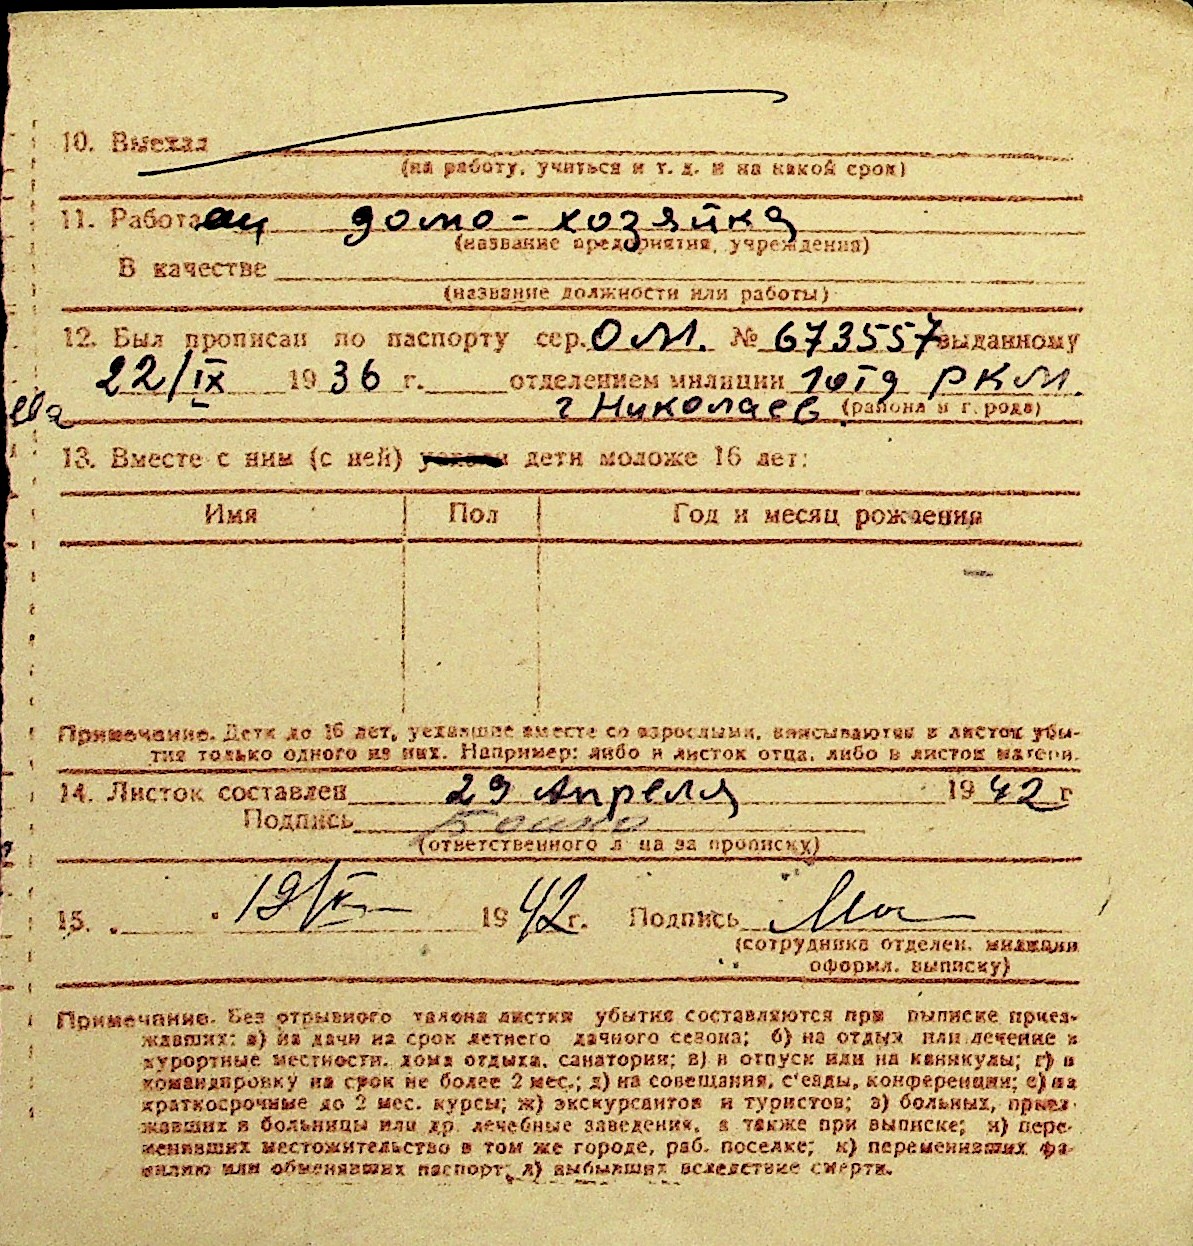 10. Выехал
(на работу, учиться и т. д. и на какой срок)
11. Работа домо-хозяйка
(название предприятия, учреждения)
В качестве
(название должности или работы)
12. Был прописан по паспорту сер. ОМ. № 673557 выданному
22/IX 1936 г. отделением милиции РКМ.
г Николаев (района и г. рода)
13. Вместе с ним (с ней) дети моложе 16 лет:
Имя Пол Год и месяц рождения
Примечание. Дети до 16 лет, уехавшие вместе со взрослыми, вписываются в листок убы-
тия только одного из них. Например: либо и листок отца, либо в листок матери.
14. Листок составлен 29 Апреля 1942 г
Подпись
(ответственного л ца за прописку)
15. 1942 г. Подпись
(сотрудника отделен. милиции
оформл. выписку)
Примечание. Без отрывного талона листки убытия составляются при выписке приез-
жавших: а) на дачи на срок летнего дачного сезона; б) на отдых или лечение в
курортные местности, дома отдыха, санатории; в) в отпуск или на каникулы; г) в
командировку на срок не более 2 мес.; д) на совещания, с'езды, конференции; е) на
краткосрочные до 2 мес. курсы; ж) экскурсантов и туристов; з) больных, приез-
жавших в больницы или др. лечебные заведения, а также при выписке; и) пере-
менивших местожительство в том же городе, раб. поселке; к) переменивших фа-
милию или обменявших паспорт; л) выбывших вследствие смерти.